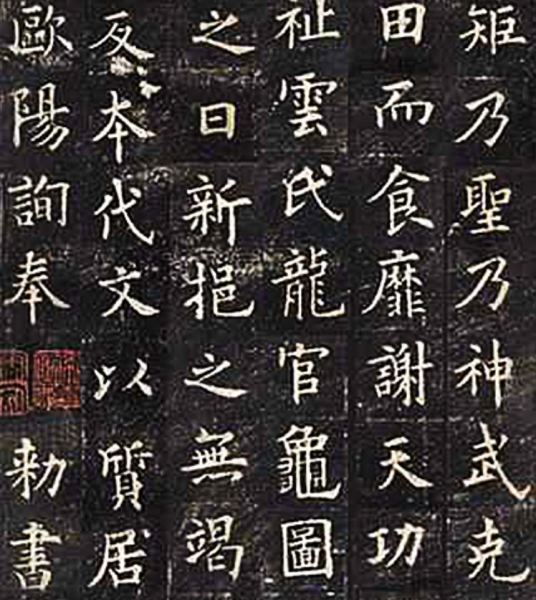 矩乃聖乃神武克
田而食靡謝天功
祉雲氏龍官龜圖
之日新挹之無竭
反本代文以質居
歐陽詢奉勑書